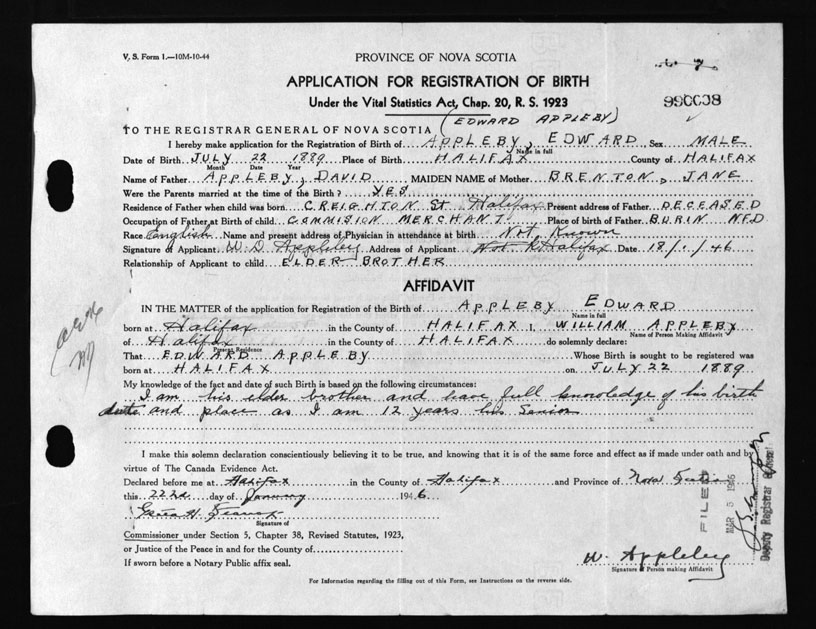 V. S. Form 1.—10M-10-44
PROVINCE OF NOVA SCOTIA
APPLICATION FOR REGISTRATION OF BIRTH
990008
Under the Vital Statistics Act, Chap. 20, R. S. 1923
(EDWARD APPLEBY)
TO THE REGISTRAR GENERAL OF NOVA SCOTIA
I hereby make application for the Registration of Birth of APPLEBY, EDWARD Sex MALE
Name in full
Date of Birth JULY 22 1889 Place of Birth HALIFAX County of HALIFAX
Month Date Year
Name of Father APPLEBY, DAVID MAIDEN NAME of Mother BRENTON, JANE
Were the Parents married at the time of the Birth? YES
Residence of Father when child was born CREIGHTON St Halifax Present address of Father DECEASED
Occupation of Father at Birth of child COMMISION MERCHANT Place of birth of Father BURIN NFD
Race English Name and present address of Physician in attendance at birth Not Known
Signature of Applicant W. D. Appleby Address of Applicant Halifax Date 18/1/46
Relationship of Applicant to child ELDER BROTHER
AFFIDAVIT
IN THE MATTER of the application for Registration of the Birth of APPLEBY EDWARD
Name in full
born at Halifax in the County of HALIFAX I, WILLIAM APPLEBY
Name of Person Making Affidavit
of Halifax in the County of HALIFAX do solemnly declare:
Present Residence
That EDWARD APPLEBY Whose Birth is sought to be registered was
born at HALIFAX on JULY 22 1889
My knowledge of the fact and date of such Birth is based on the following circumstances:
I am his elder brother and have full knowledge of his birth
date and place as I am 12 years his Senior
I make this solemn declaration conscientiously believing it to be true, and knowing that it is of the same force and effect as if made under oath and by
virtue of The Canada Evidence Act.
Declared before me at Halifax in the County of Halifax and Province of Nova Scotia
this 22nd day of January 1946
Signature of
Commissioner under Section 5, Chapter 38, Revised Statutes, 1923,
or Justice of the Peace in and for the County of
If sworn before a Notary Public affix seal.
W. Appleby
Signature of Person making Affidavit
For Information regarding the filling out of this Form, see Instructions on the reverse side.
FILED
MAR 5 1946
Deputy Registrar General